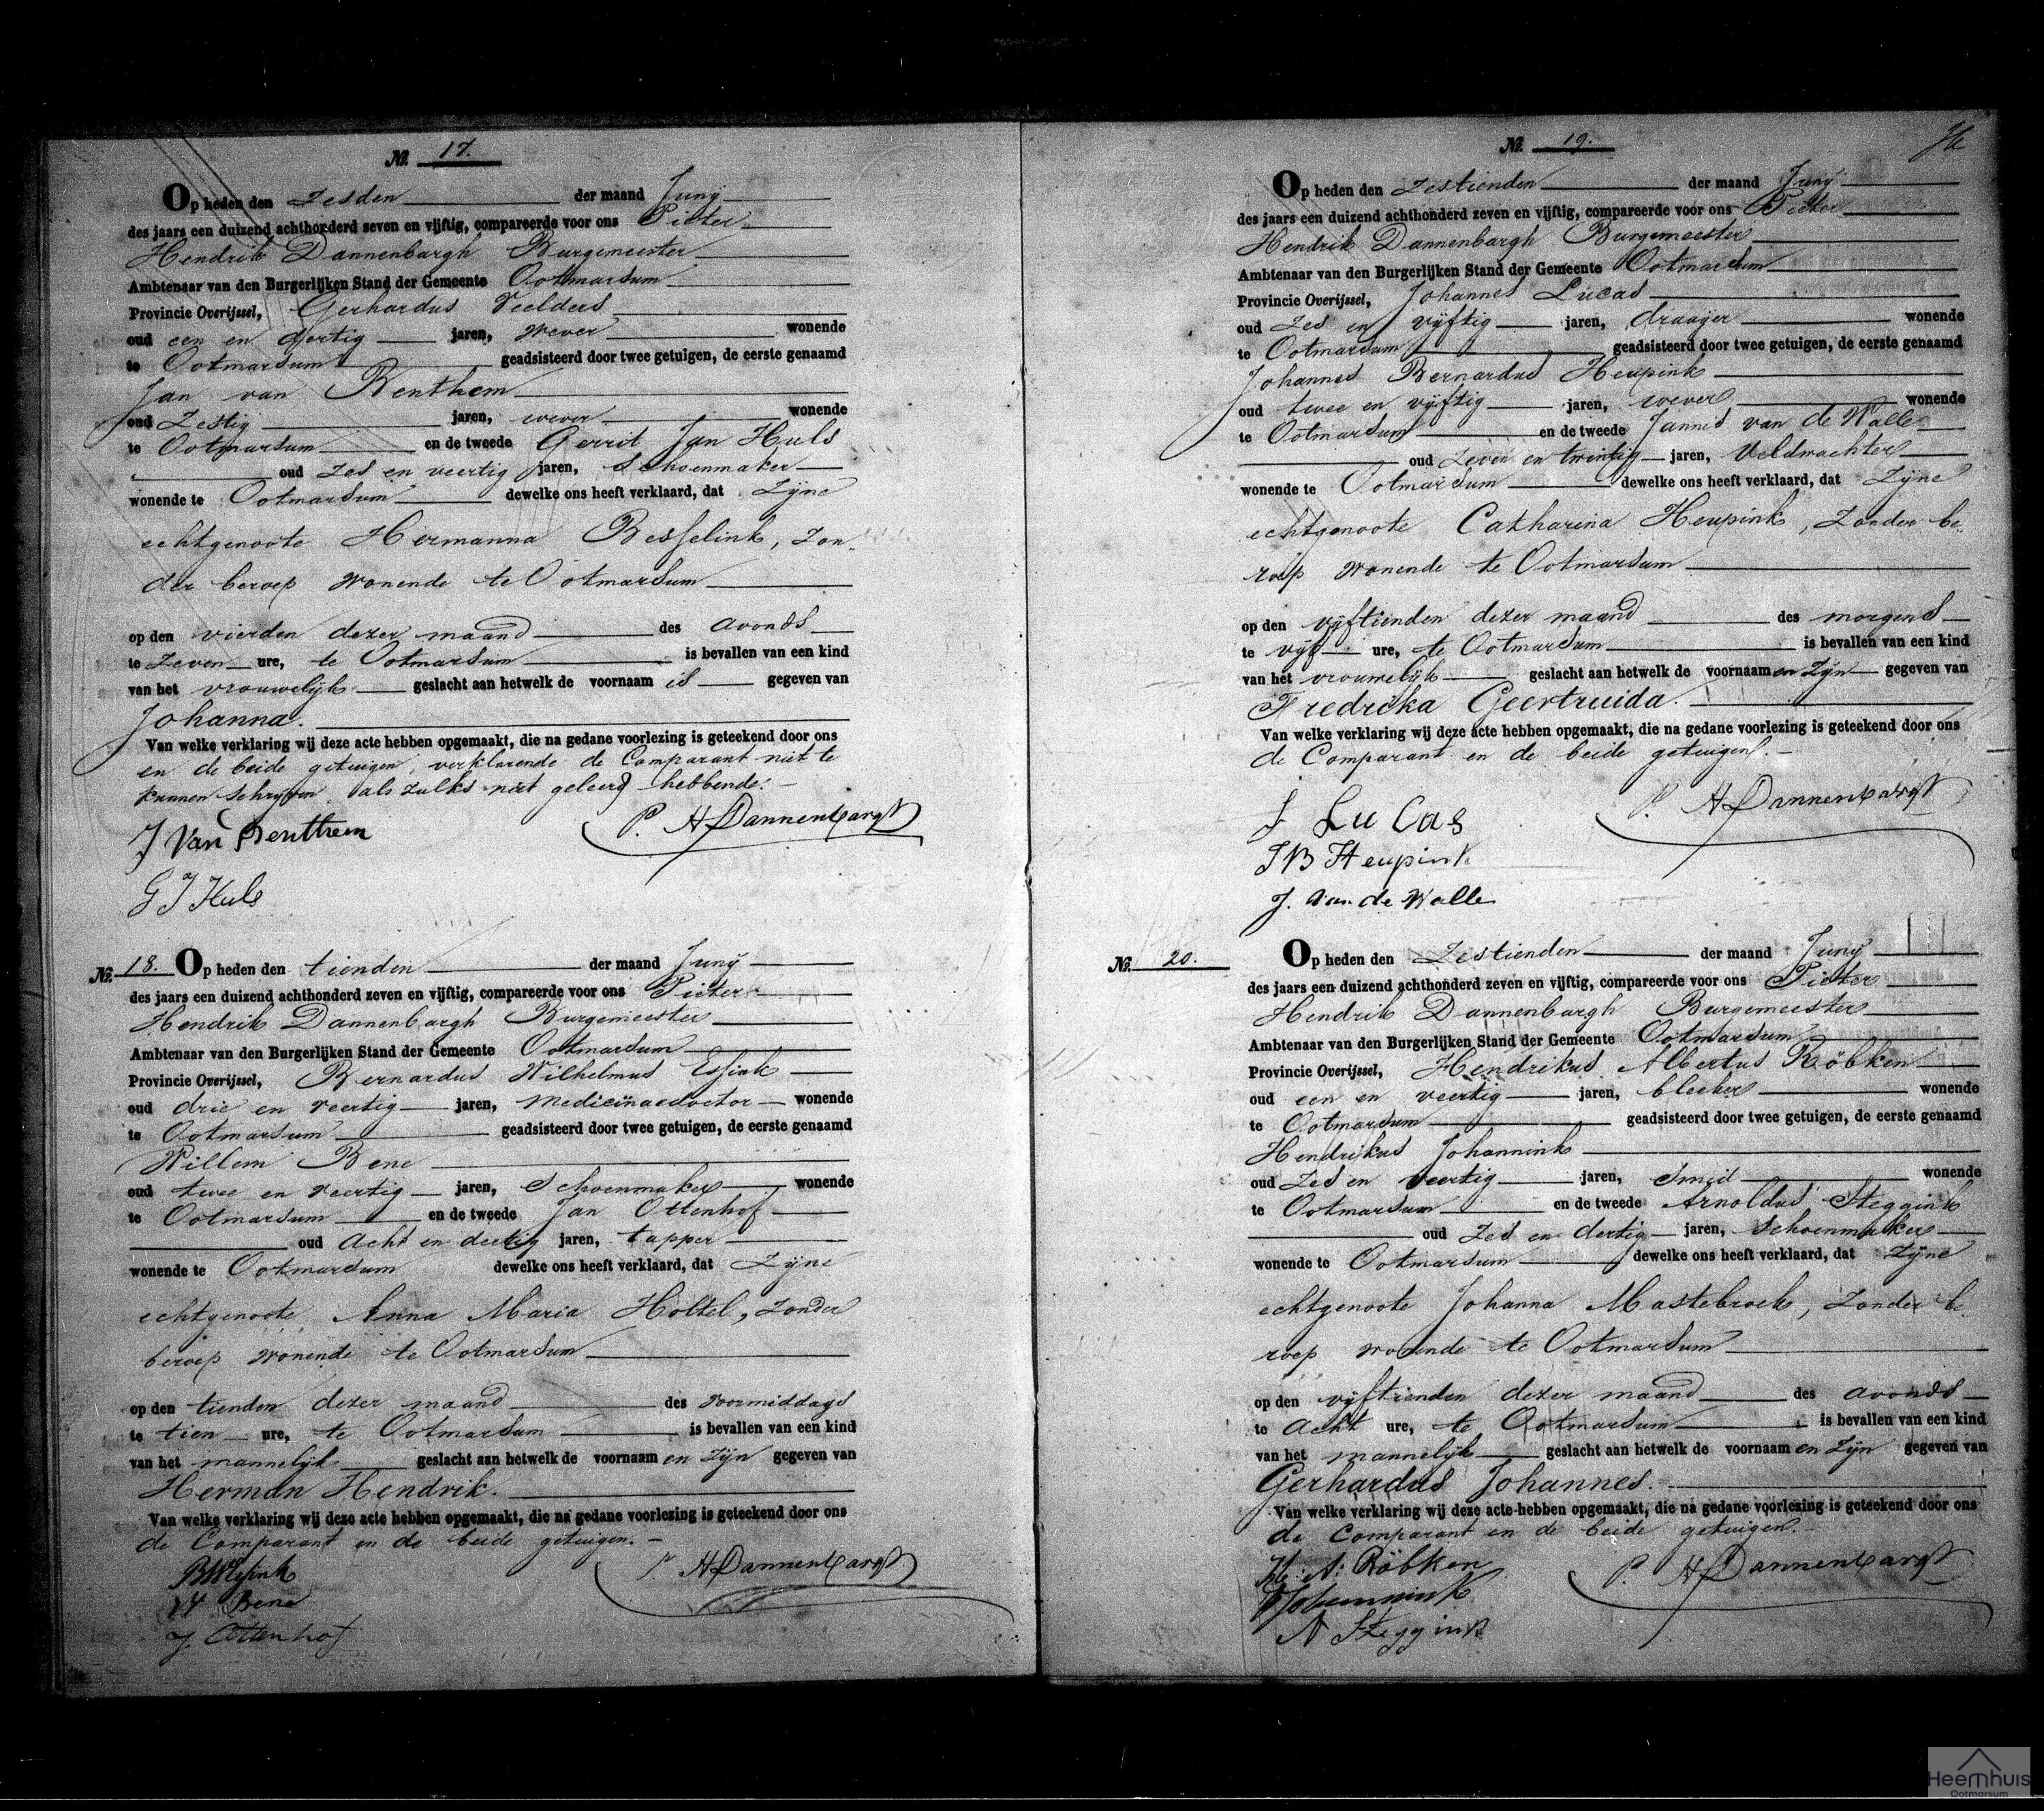 No. 17.
Op heden den zesden der maand Junij
des jaars een duizend achthonderd zeven en vijftig, compareerde voor ons Pieter
Hendrik Dannenbargh Burgemeester
Ambtenaar van den Burgerlijken Stand der Gemeente Ootmarsum
Provincie Overijssel, Gerhardus Veelders
oud een en dertig jaren, wever wonende
te Ootmarsum geadsisteerd door twee getuigen, de eerste genaamd
Jan van Benthem
oud zestig jaren, wever wonende
te Ootmarsum en de tweede Gerrit Jan Huls
oud zes en veertig jaren, schoenmaker
wonende te Ootmarsum dewelke ons heeft verklaard, dat zijne
echtgenoote Hermanna Besselink, zon-
der beroep wonende te Ootmarsum
op den vierden dezer maand des avonds
te zeven ure, te Ootmarsum is bevallen van een kind
van het vrouwelijk geslacht aan hetwelk de voornaam is gegeven van
Johanna.
Van welke verklaring wij deze acte hebben opgemaakt, die na gedane voorlezing is geteekend door ons
en de beide getuigen, verklarende de Comparant niet te
kunnen schrijven als zulks niet geleerd hebbende.
J Van Benthem P. H Dannenbargh
G J Huls
No. 18. Op heden den tienden der maand Junij
des jaars een duizend achthonderd zeven en vijftig, compareerde voor ons Pieter
Hendrik Dannenbargh Burgemeester
Ambtenaar van den Burgerlijken Stand der Gemeente Ootmarsum
Provincie Overijssel, Bernardus Wilhelmus
oud drie en veertig jaren, medicinaedoctor wonende
te Ootmarsum geadsisteerd door twee getuigen, de eerste genaamd
Willem Bene
oud twee en veertig jaren, Schoenmaker wonende
te Ootmarsum en de tweede Jan Ottenhof
oud acht en dertig jaren, tapper
wonende te Ootmarsum dewelke ons heeft verklaard, dat zijne
echtgenoote, Anna Maria Holtel, zonder
beroep wonende te Ootmarsum
op den tienden dezer maand des voormiddags
te tien ure, te Ootmarsum is bevallen van een kind
van het mannelijk geslacht aan hetwelk de voornaam en zijn gegeven van
Herman Hendrik.
Van welke verklaring wij deze acte hebben opgemaakt, die na gedane voorlezing is geteekend door ons
de Comparant en de beide getuigen.
P. H Dannenbargh
W Bene
J Ottenhof
No. 19.
Op heden den zestienden der maand Junij
des jaars een duizend achthonderd zeven en vijftig, compareerde voor ons Pieter
Hendrik Dannenbargh Burgemeester
Ambtenaar van den Burgerlijken Stand der Gemeente Ootmarsum
Provincie Overijssel, Johannes Lucas
oud zes en vijftig jaren, draaijer wonende
te Ootmarsum geadsisteerd door twee getuigen, de eerste genaamd
Johannes Bernardus Heupink
oud twee en vijftig jaren, wever wonende
te Ootmarsum en de tweede Jannes van de Walle
oud zeven en twintig jaren, Veldwachter
wonende te Ootmarsum dewelke ons heeft verklaard, dat zijne
echtgenoote Catharina Heupink, zonder be-
roep wonende te Ootmarsum
op den vijftienden dezer maand des morgens
te vijf ure, te Ootmarsum is bevallen van een kind
van het vrouwelijk geslacht aan hetwelk de voornaam en zijn gegeven van
Fredrika Geertruida.
Van welke verklaring wij deze acte hebben opgemaakt, die na gedane voorlezing is geteekend door ons
de Comparant en de beide getuigen.
J LuCas P. H Dannenbargh
J B Heupink
J. Van de Walle
No. 20. Op heden den zestienden der maand Junij
des jaars een duizend achthonderd zeven en vijftig, compareerde voor ons Pieter
Hendrik Dannenbargh Burgemeester
Ambtenaar van den Burgerlijken Stand der Gemeente Ootmarsum
Provincie Overijssel, Hendrikus Albertus Röbken
oud een en veertig jaren, bleeker wonende
te Ootmarsum geadsisteerd door twee getuigen, de eerste genaamd
Hendrikus Johannink
oud zes en veertig jaren, smid wonende
te Ootmarsum en de tweede Arnoldus Steggink
oud zes en dertig jaren, schoenmaker
wonende te Ootmarsum dewelke ons heeft verklaard, dat zijne
echtgenoote Johanna Mastebroek, zonder be-
roep wonende te Ootmarsum
op den vijftienden dezer maand des avonds
te acht ure, te Ootmarsum is bevallen van een kind
van het mannelijk geslacht aan hetwelk de voornaam en zijn gegeven van
Gerhardus Johannes.
Van welke verklaring wij deze acte hebben opgemaakt, die na gedane voorlezing is geteekend door ons
de Comparant en de beide getuigen.
A: Röbken P. H Dannenbargh
Johannink
A Steggink
Heemhuis
Ootmarsum